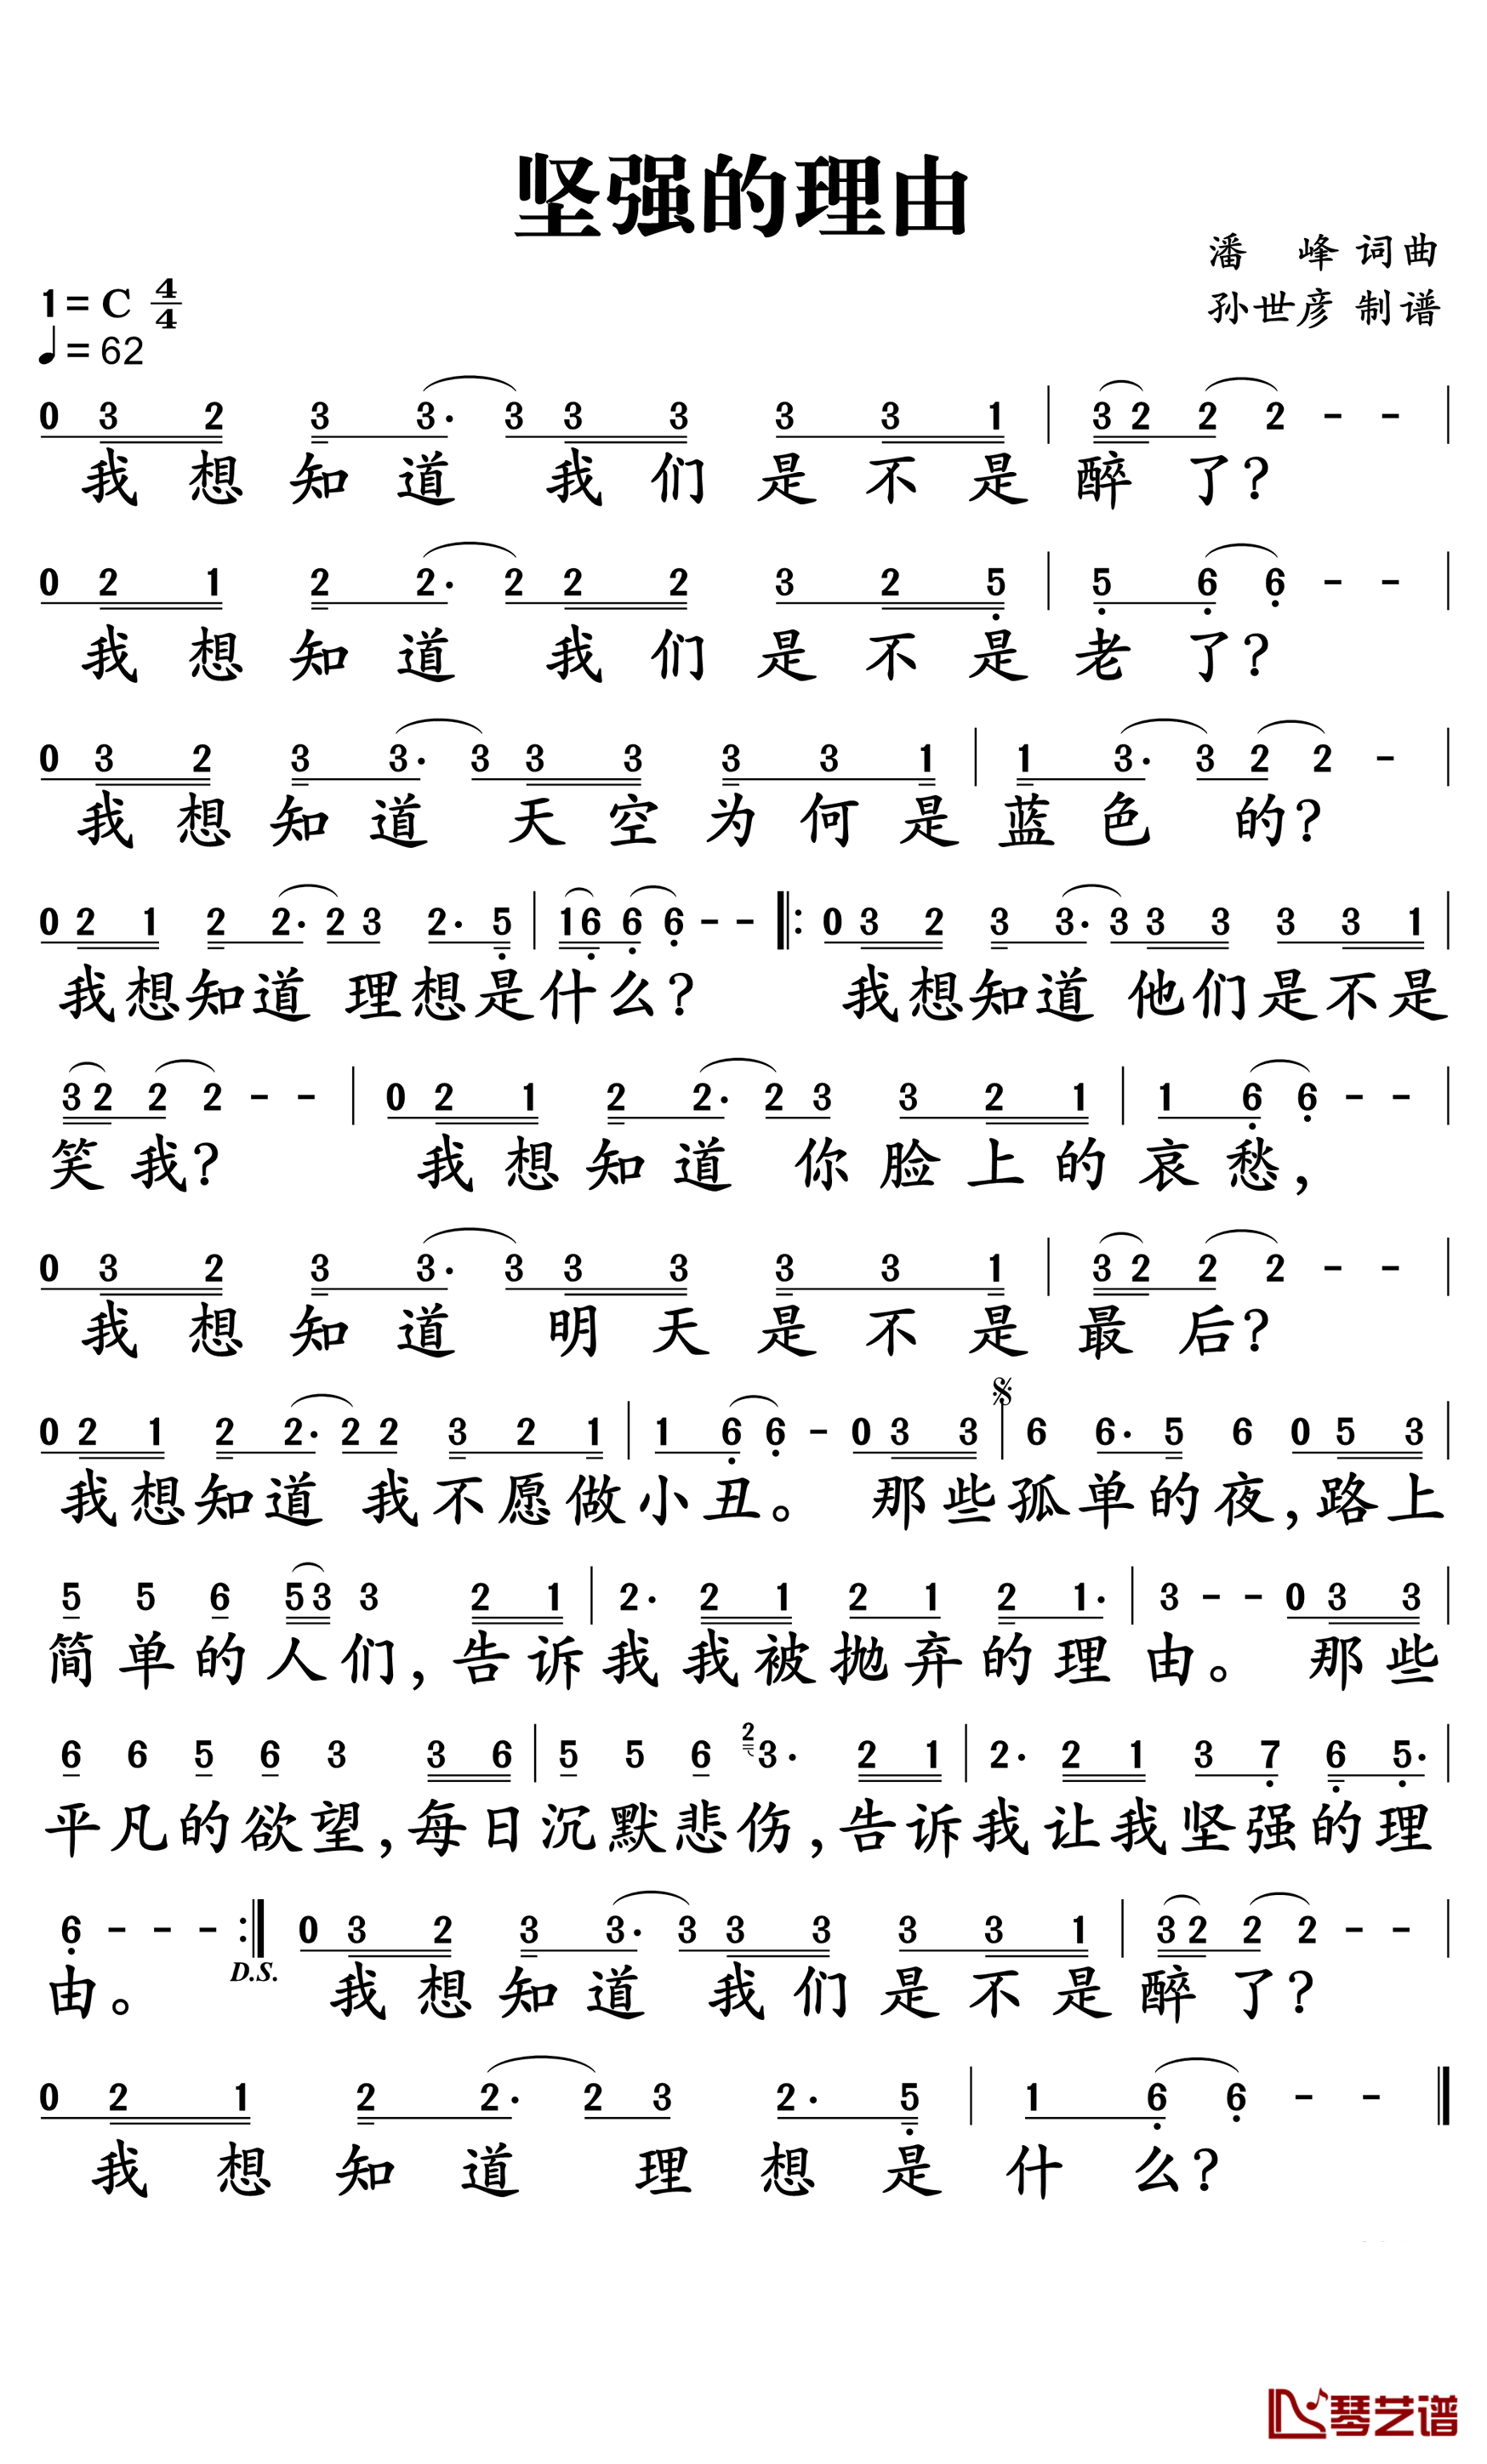 坚强的理由
潘 峰 词曲
1= C 4/4
孙世彦 制谱
♩= 62
0 3 2 3 3· 3 3 3 3 3 1 | 3 2 2 2 - - |
我想知道 我们是不是醉了?
0 2 1 2 2· 2 2 2 3 2 5 | 5 6 6 - - |
我想知道 我们是不是老了?
0 3 2 3 3· 3 3 3 3 3 1 | 1 3· 3 2 2 - |
我想知道 天空为何是蓝色 的?
0 2 1 2 2· 2 3 2· 5 | 1 6 6 6 - - ‖: 0 3 2 3 3· 3 3 3 3 3 1 |
我想知道 理想是什么? 我想知道 他们是不是
3 2 2 2 - - | 0 2 1 2 2· 2 3 3 2 1 | 1 6 6 - - |
笑我? 我想知道 你脸上的哀愁,
0 3 2 3 3· 3 3 3 3 3 1 | 3 2 2 2 - - |
我想知道 明天是不是最后?
0 2 1 2 2· 2 2 3 2 1 | 1 6 6 - 0 3 3 | 6 6· 5 6 0 5 3 |
我想知道 我不愿做小丑。 那些孤单的夜,路上
5 5 6 5 3 3 2 1 | 2· 2 1 2 1 2 1· | 3 - - 0 3 3 |
简单的人们,告诉我我被抛弃的理由。 那些
6 6 5 6 3 3 6 | 5 5 6 2 3· 2 1 | 2· 2 1 3 7 6 5· |
平凡的欲望,每日沉默悲伤,告诉我让我坚强的理
6 - - - :‖ 0 3 2 3 3· 3 3 3 3 3 1 | 3 2 2 2 - - |
D.S.
由。 我想知道 我们是不是醉了?
0 2 1 2 2· 2 3 2· 5 | 1 6 6 - - ‖
我想知道 理想是什么?
琴艺谱